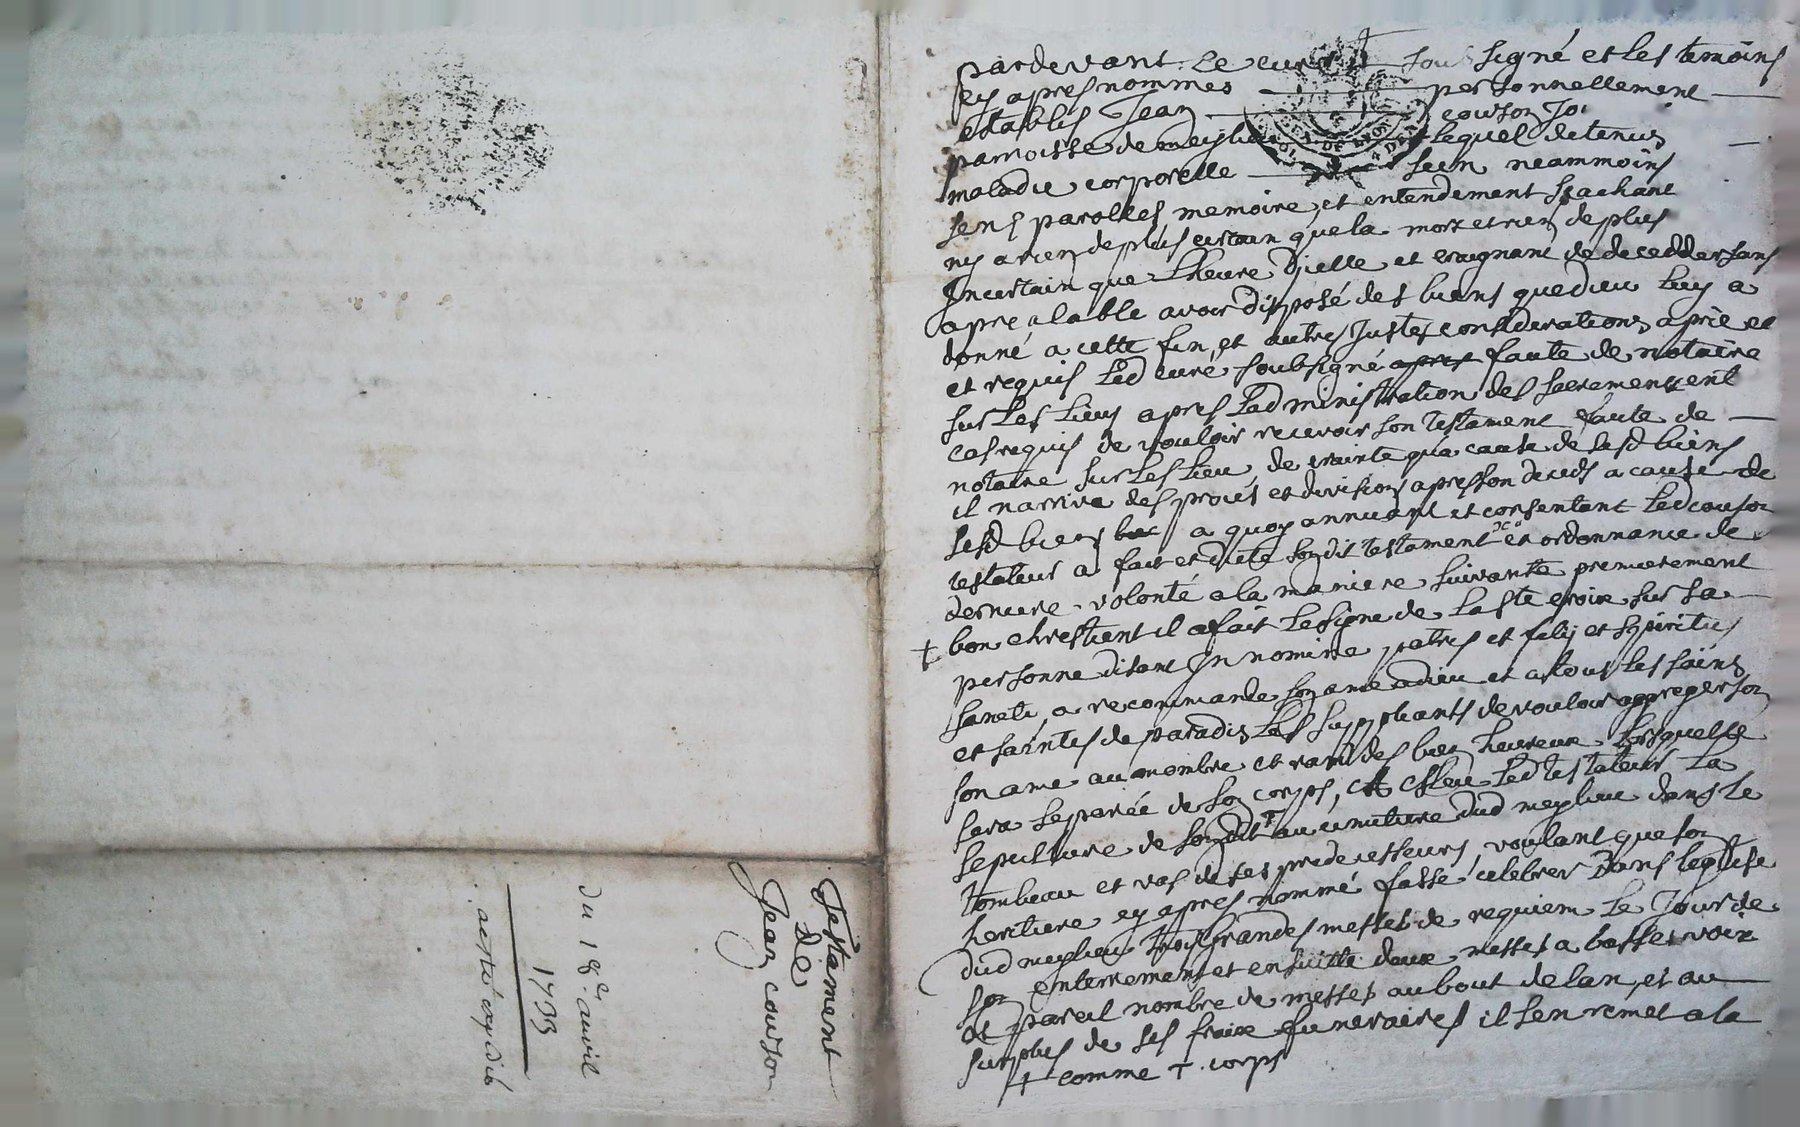 Testament
de
Jean couson
du 18e. avvril
1733
acte expedié
pardevant Le curé soussigné et les temoins
cy apres nommes personnellement
establis Jean couson
parroisse de meylieu lequel detenus
maladie corporelle sein neammoins
sens parolles memoire, et entendement sçachant
ny avoir de plus certain que la mort et rien de plus
Incertain que lheure D'icelle et craignant de deceddersans
apreçalable avoir disposé des biens que dieu luy a
donné a cette fin, et autres Justes considerations, a prié et
et requis Led curé soubsigné apres faute de notaire
sur Les Lieux apres Ladministration des sacrements
cas requis de vouloir recevoir son testament faute de
notaire sur Les Lieu, de crainte qu'a cause de sesd biens
il narrive des proces et division apres son deceds a cause de
sesd biens a quoy annuant et consentant Led couson
testateur a fait et dicté sondit testament et ordonnance de
derniere volonté a la maniere suivante premierement
† bon chrestient il a fait Le signe de La Ste croix sur sa
personne disant In nomine patris et filij et spiritus
sancti, a recommandé son ame a dieu et a tous les saints
et saintes de paradis Les suppliants de vouloir aggreger son
son ame au nombre et rang des bien heureux Lorsquelle
sera separée de son corps, esleu Led testateur La
sepulture de sondit † au cimitiere dud meylieu dans le
tombeau et vas de ses predecesseurs, voulant que son
heritiere cy apres nommé fasse celebrer Dans leglise
dud meylieu trois grandes messes de requiem Le Jour de
son enterrement et ensuitte deux messes a basses voix
et pareil nombre de messes au bout de lan, et au
surplus de ses fraix funeraires il sen remet a la
† comme † corps